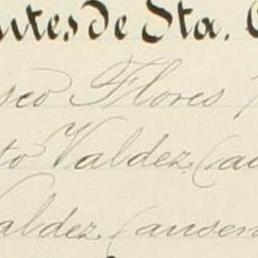 ntes de Sta. C
sco Flores
to Valdez (au
aldez (ausen